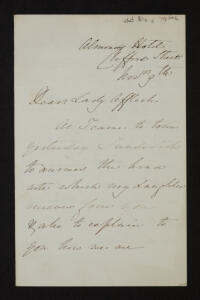 Almond's Hotel
Clifford Street
Novr 9th
Dear Lady Affleck
As I came to town
yesterday I undertook
to answer the kind
note which my daughter
received from you
& also to explain to
you how we are